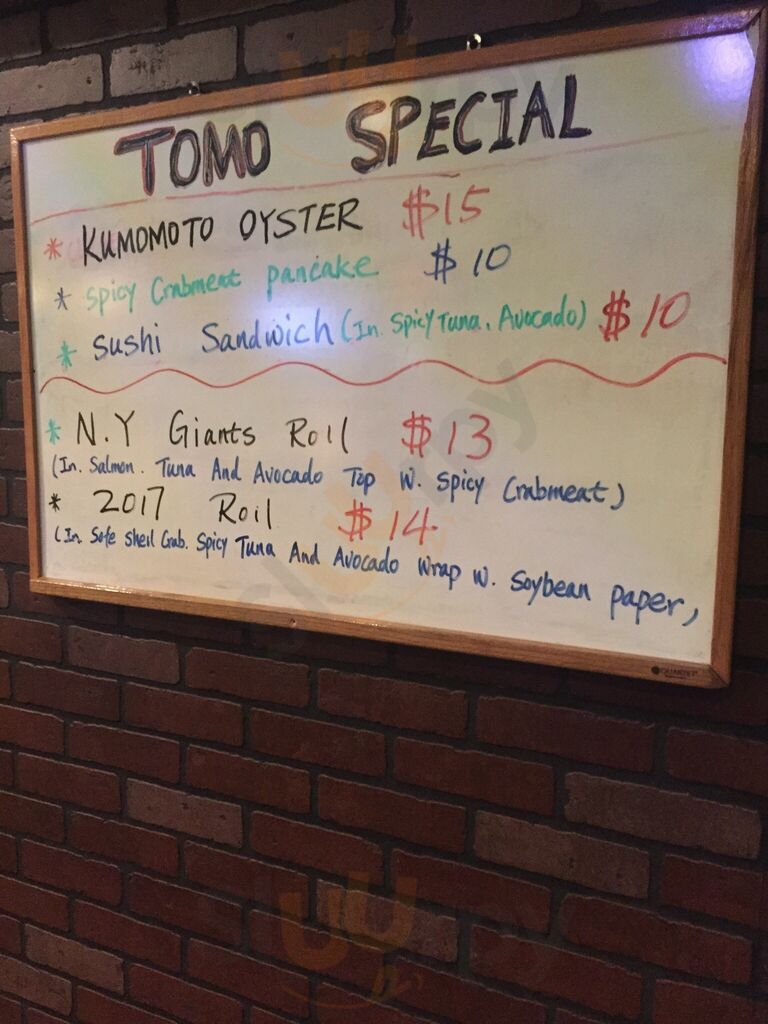 TOMO SPECIAL
* KUMOMOTO OYSTER $15
* Spicy Crabmeat pancake $10
* Sushi Sandwich (In. Spicy Tuna. Avocado) $10
* N.Y Giants Roll $13
(In. Salmon. Tuna And Avocado Top W. Spicy Crabmeat)
* 2017 Roll $14
(In. Sofe Shell Crab. Spicy Tuna And Avocado Wrap W. Soybean paper,
QUARTET